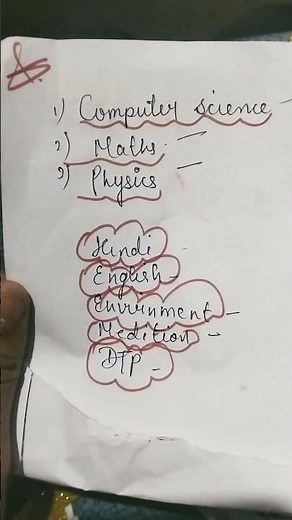 1) Computer science -
2) Maths.
3) Physics
Hindi
English -
Envirnment -
Medition -
DTP -